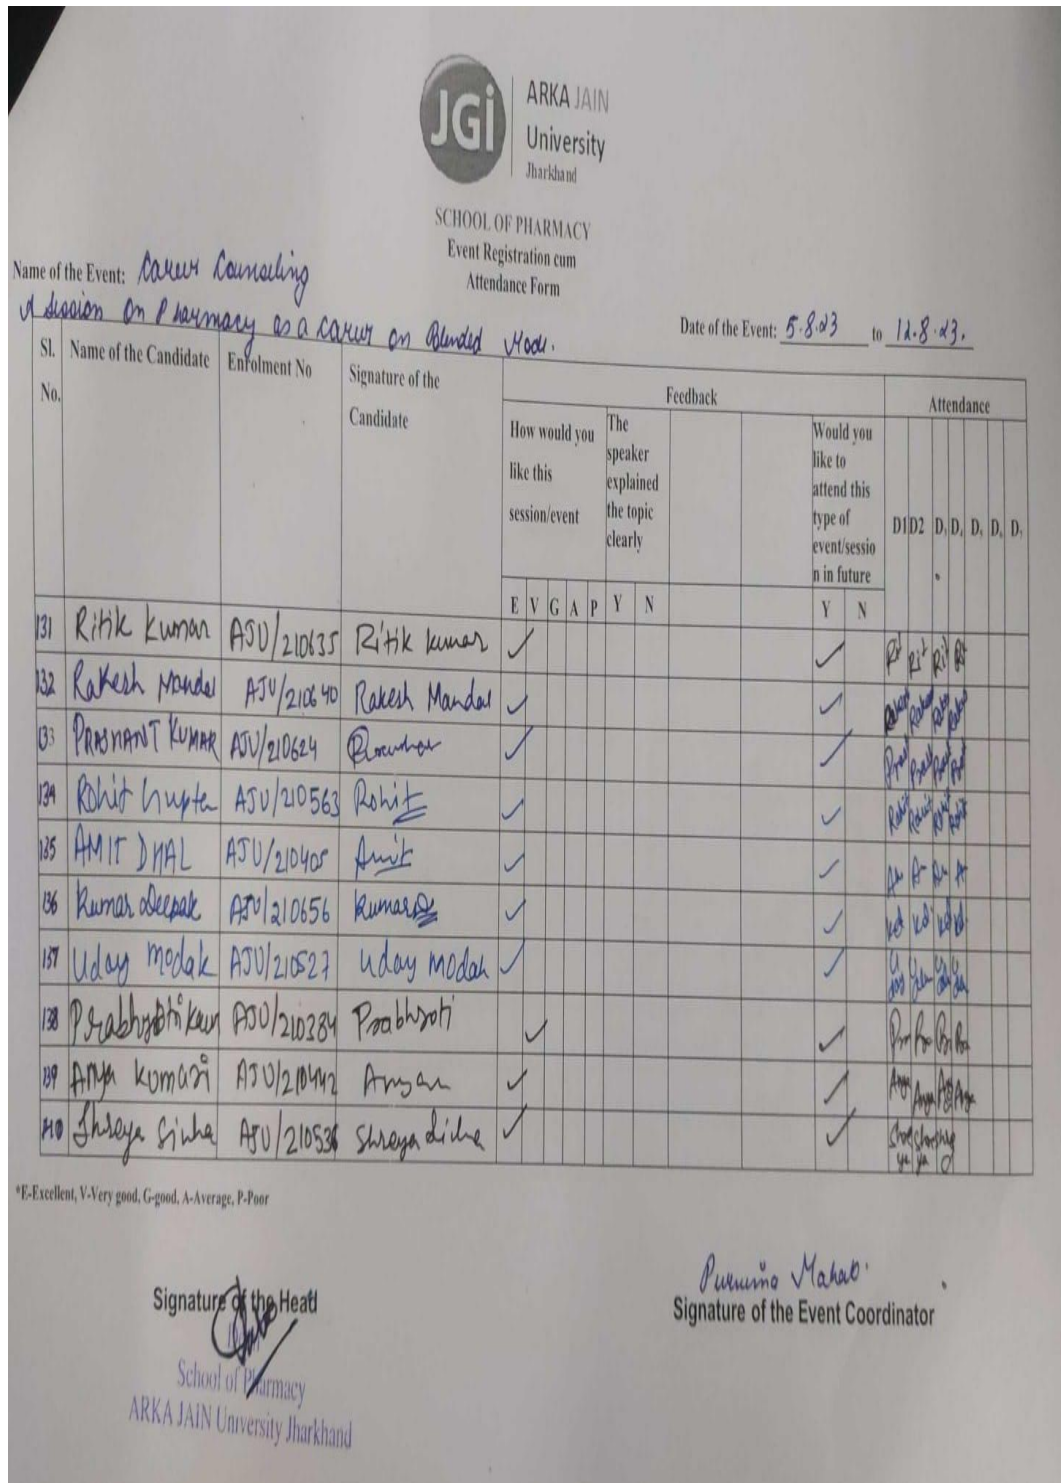 JGi
ARKA JAIN
University
Jharkhand
SCHOOL OF PHARMACY
Event Registration cum
Attendance Form
Name of the Event: Career Counseling
A Session On Pharmacy as a career on Blended Mode.
Date of the Event: 5.8.23 to 12.8.23.
Sl. No. Name of the Candidate Enrolment No Signature of the Candidate Feedback Attendance
How would you like this session/event The speaker explained the topic clearly Would you like to attend this type of event/session in future D1 D2 D, D, D, D, D,
E V G A P Y N Y N
131 Ritik Kumar AJU/210635 Ritik kumar ✓ ✓ Rit Rit Rit Rit
132 Rakesh Mandal AJU/210640 Rakesh Mandal ✓ ✓
133 PRASHANT KUMAR AJU/210624 ✓ ✓
134 Rohit Gupta AJU/210563 Rohit ✓ ✓
135 AMIT DHAL AJU/210405 Amit ✓ ✓
136 Kumar Deepak AJU/210656 Kumar ✓ ✓ kd kd kd kd
137 Uday Modak AJU/210527 Uday Modak ✓ ✓
138 Prabhjoti Kaur AJU/210384 Prabhjoti ✓ ✓
139 Anya Kumari AJU/210442 ✓ ✓
140 Shreya Sinha AJU/210536 Shreya Sinha ✓ ✓
*E-Excellent, V-Very good, G-good, A-Average, P-Poor
Signature of the Head
School of Pharmacy
ARKA JAIN University Jharkhand
Purnima Mahato
Signature of the Event Coordinator